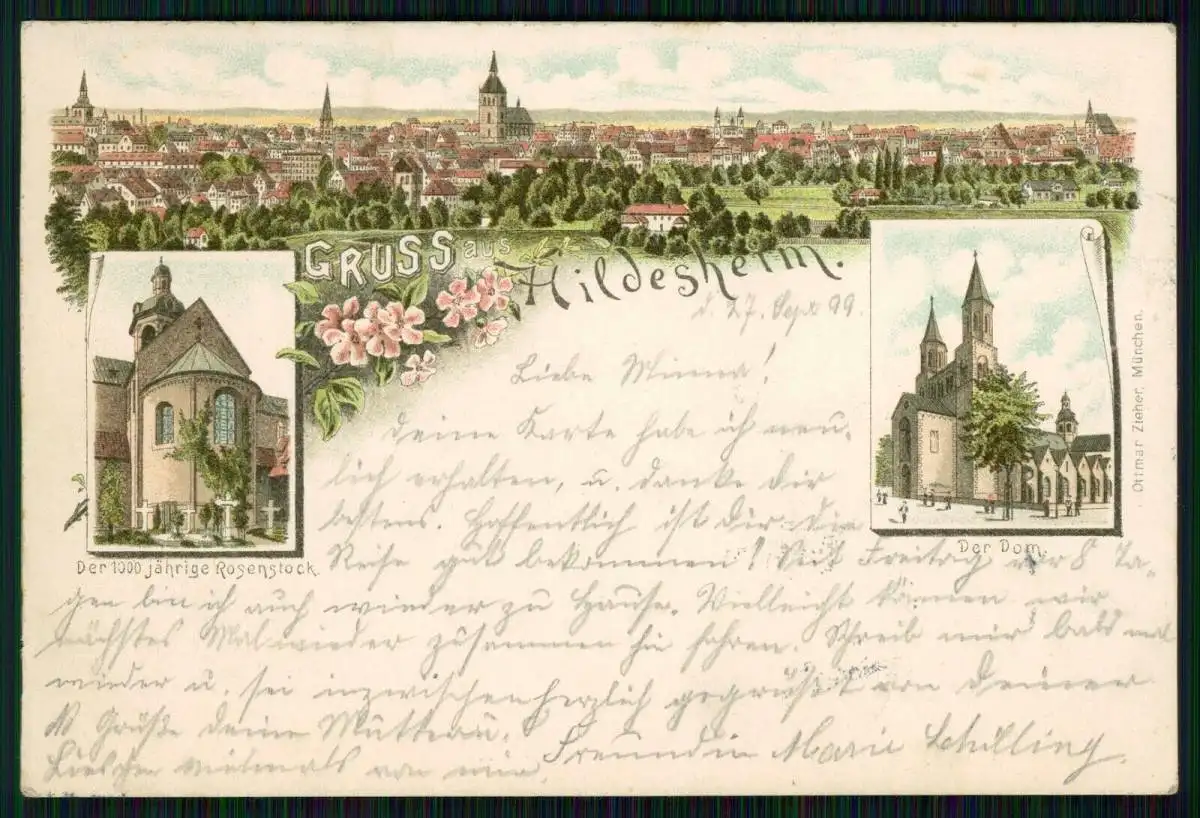 GRUSS aus Hildesheim.
d. 27. Sept 99.
Liebe Minna!
Deine Karte habe ich neu-
lich erhalten, u. danke dir
bestens. Hoffentlich ist dir die
Reise gut bekommen! Seit Freitag vor 8 Ta-
gen bin ich auch wieder zu Hause. Vielleicht können wir
nächstes Mal wieder zusammen hin fahren. Schreib mir bald mal
wieder u. sei inzwischen herzlich gegrüßt von Deiner
Freundin Marie Schilling.
Grüße deine Mutter u.
Lieschen vielmals von mir.
Der 1000 jährige Rosenstock.
Der Dom.
Ottmar Zieher, München.